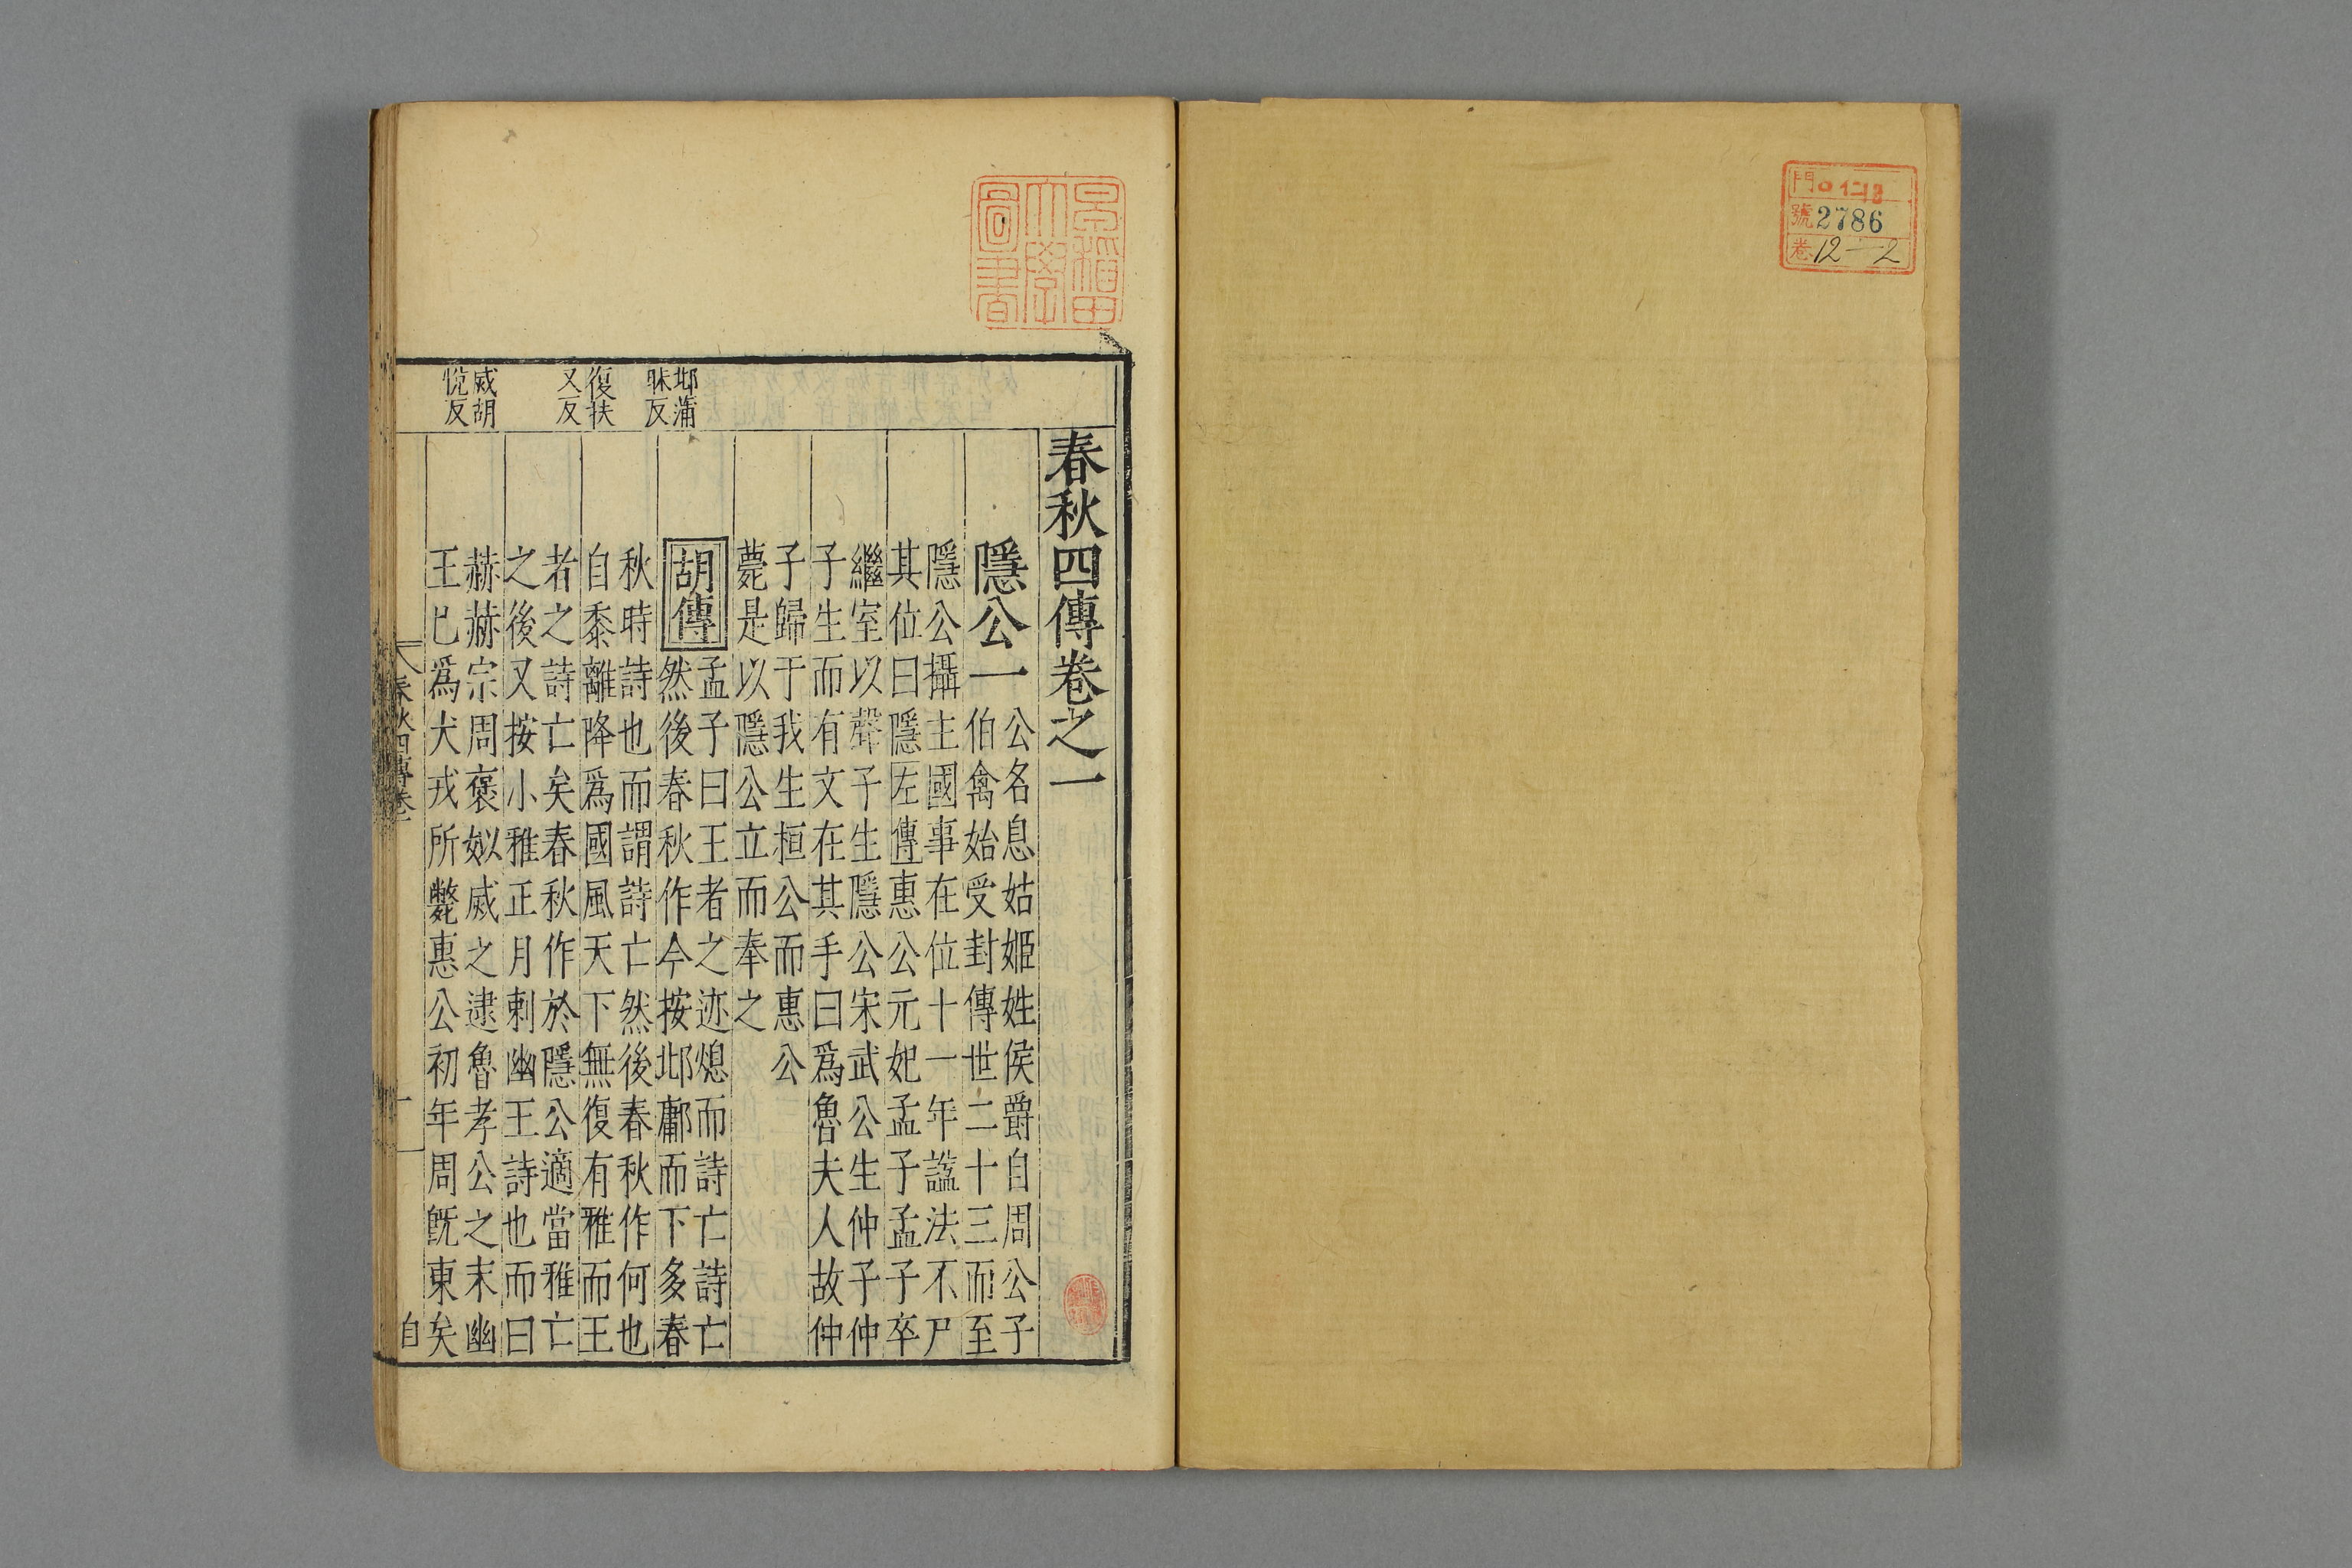 門 0123
號 2786
卷 12-2
早稲田
大學
圖書
邶蒲
昧反
復扶
又反
烕胡
悅反
春秋四傳卷之一
隱公一
公名息姑姬姓侯爵自周公子
伯禽始受封傳世二十三而至
隱公攝主國事在位十一年諡法不尸
其位曰隱左傳惠公元妃孟子孟子卒
繼室以聲子生隱公宋武公生仲子仲
子生而有文在其手曰爲魯夫人故仲
子歸于我生桓公而惠公
薨是以隱公立而奉之
胡傳
孟子曰王者之迹熄而詩亡詩亡
然後春秋作今按邶鄘而下多春
秋時詩也而謂詩亡然後春秋作何也
自黍離降爲國風天下無復有雅而王
者之詩亡矣春秋作於隱公適當雅亡
之後又按小雅正月刺幽王詩也而曰
赫赫宗周褒姒烕之逮魯孝公之末幽
王已爲犬戎所斃惠公初年周旣東矣
春秋四傳卷一
一
自